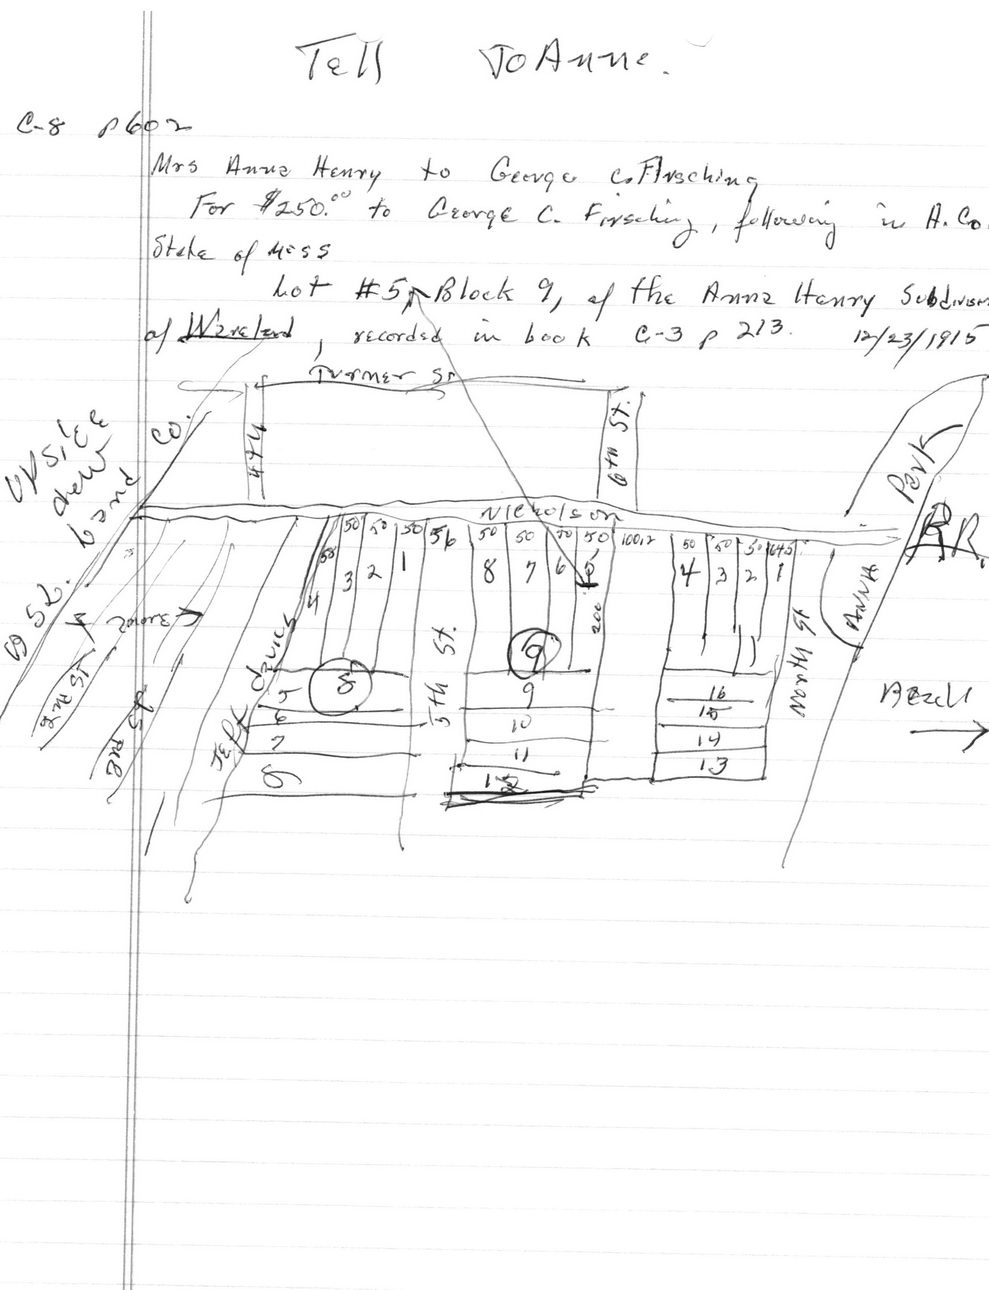 Tell JoAnne.
C-8 p602
Mrs Anna Henry to George C. Firsching
For $250.00 to George C. Firsching, following in H. Co.
State of Miss
Lot #5, Block 9, of the Anna Henry Subdivision
of Waveland, recorded in book C-3 p 213. 12/23/1915
Turner St
4th
6th St.
Co.
Land
Park
Nicholson
R.R.
50 50 50 56 50 50 50 50 100.12 50 50 50 645
4 3 2 1
8 7 6 5
4 3 2 1
200
ANNA
St.
Jeff Davis
5th St.
North St
8
9
5
6
7
8
9
10
11
12
16
15
14
13
Beach